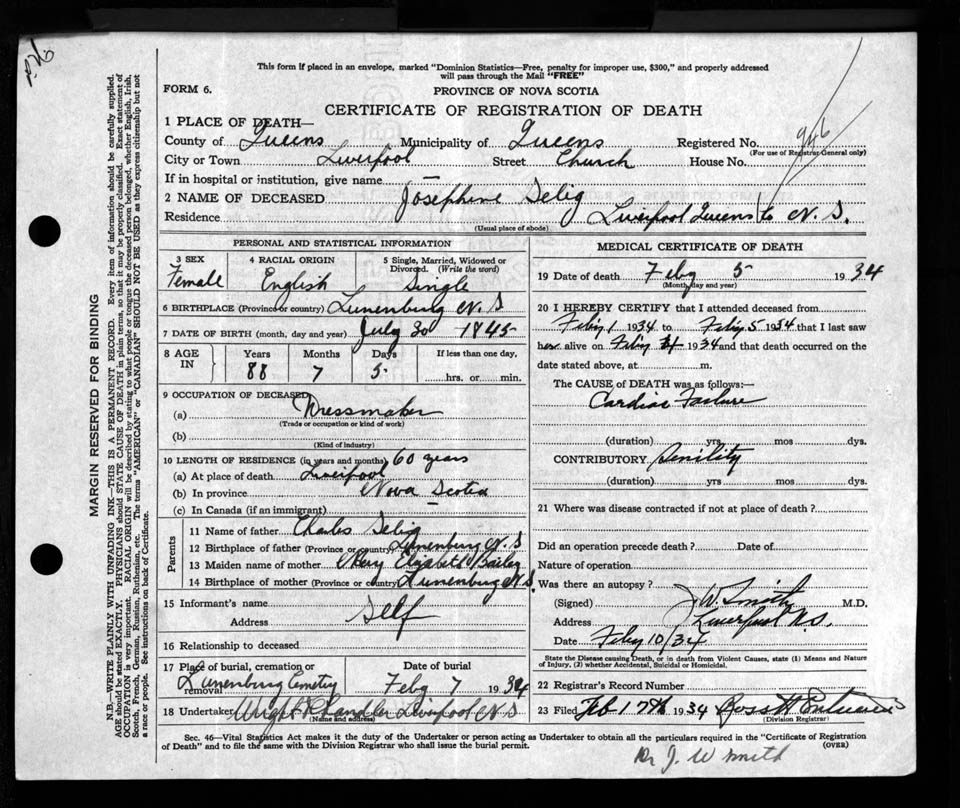 This form if placed in an envelope, marked "Dominion Statistics—Free, penalty for improper use, $300," and properly addressed
will pass through the Mail "FREE"
FORM 6.
PROVINCE OF NOVA SCOTIA
CERTIFICATE OF REGISTRATION OF DEATH
1 PLACE OF DEATH—
County of Queens Municipality of Queens Registered No. 946
(For use of Registrar General only)
City or Town Liverpool Street Church House No.
If in hospital or institution, give name —
2 NAME OF DECEASED Josephine Selig
Residence Liverpool Queens Co N.S.
(Usual place of abode)
PERSONAL AND STATISTICAL INFORMATION
3 SEX Female
4 RACIAL ORIGIN English
5 Single, Married, Widowed or Divorced. (Write the word) Single
6 BIRTHPLACE (Province or country) Lunenburg N.S
7 DATE OF BIRTH (month, day and year) July 30 1845
8 AGE IN Years 88 Months 7 Days 5 If less than one day, hrs. or min.
9 OCCUPATION OF DECEASED
(a) Dressmaker
(Trade or occupation or kind of work)
(b)
(Kind of industry)
10 LENGTH OF RESIDENCE (in years and months) 60 years
(a) At place of death Liverpool
(b) In province Nova Scotia
(c) In Canada (if an immigrant)
Parents
11 Name of father Charles Selig
12 Birthplace of father (Province or country) Lunenburg N.S
13 Maiden name of mother Elizabeth Bailey
14 Birthplace of mother (Province or country) Lunenburg N.S.
15 Informant's name Self
Address
16 Relationship to deceased
17 Place of burial, cremation or removal Lunenburg Cemetry
Date of burial Feby 7 1934
18 Undertaker Chandler Liverpool N S
(Name and address)
MEDICAL CERTIFICATE OF DEATH
19 Date of death Feby 5 1934
(Month, day and year)
20 I HEREBY CERTIFY that I attended deceased from
Feby 1 1934 to Feby 5 1934 that I last saw
her alive on Feby 1934 and that death occurred on the
date stated above, at m.
The CAUSE of DEATH was as follows:—
Cardiac Failure
(duration) yrs. mos. dys.
CONTRIBUTORY Senility
(duration) yrs. mos. dys.
21 Where was disease contracted if not at place of death?
Did an operation precede death? Date of
Nature of operation
Was there an autopsy?
(Signed) J W. Smith M.D.
Address Liverpool N.S.
Date Feby 10/34
State the Disease causing Death, or in death from Violent Causes, state (1) Means and Nature
of Injury, (2) whether Accidental, Suicidal or Homicidal.
22 Registrar's Record Number
23 Filed Feb 17th 1934 Ross H
(Division Registrar)
Sec. 46—Vital Statistics Act makes it the duty of the Undertaker or person acting as Undertaker to obtain all the particulars required in the "Certificate of Registration
of Death" and to file the same with the Division Registrar who shall issue the burial permit.
(OVER)
Dr J. W Smith
MARGIN RESERVED FOR BINDING
N.B.—WRITE PLAINLY WITH UNFADING INK—THIS IS A PERMANENT RECORD. Every item of information should be carefully supplied.
AGE should be stated EXACTLY. PHYSICIANS should STATE CAUSE OF DEATH in plain terms, so that it may be properly classified. Exact statement of
OCCUPATION is very important. RACIAL ORIGIN will be described by stating to what people or tongue the deceased person belonged, whether English, Irish,
Scotch, French, German, Russian, Ruthenian, etc. The terms "AMERICAN" or "CANADIAN" SHOULD NOT BE USED as they express citizenship but not
a race or people. See instructions on back of Certificate.